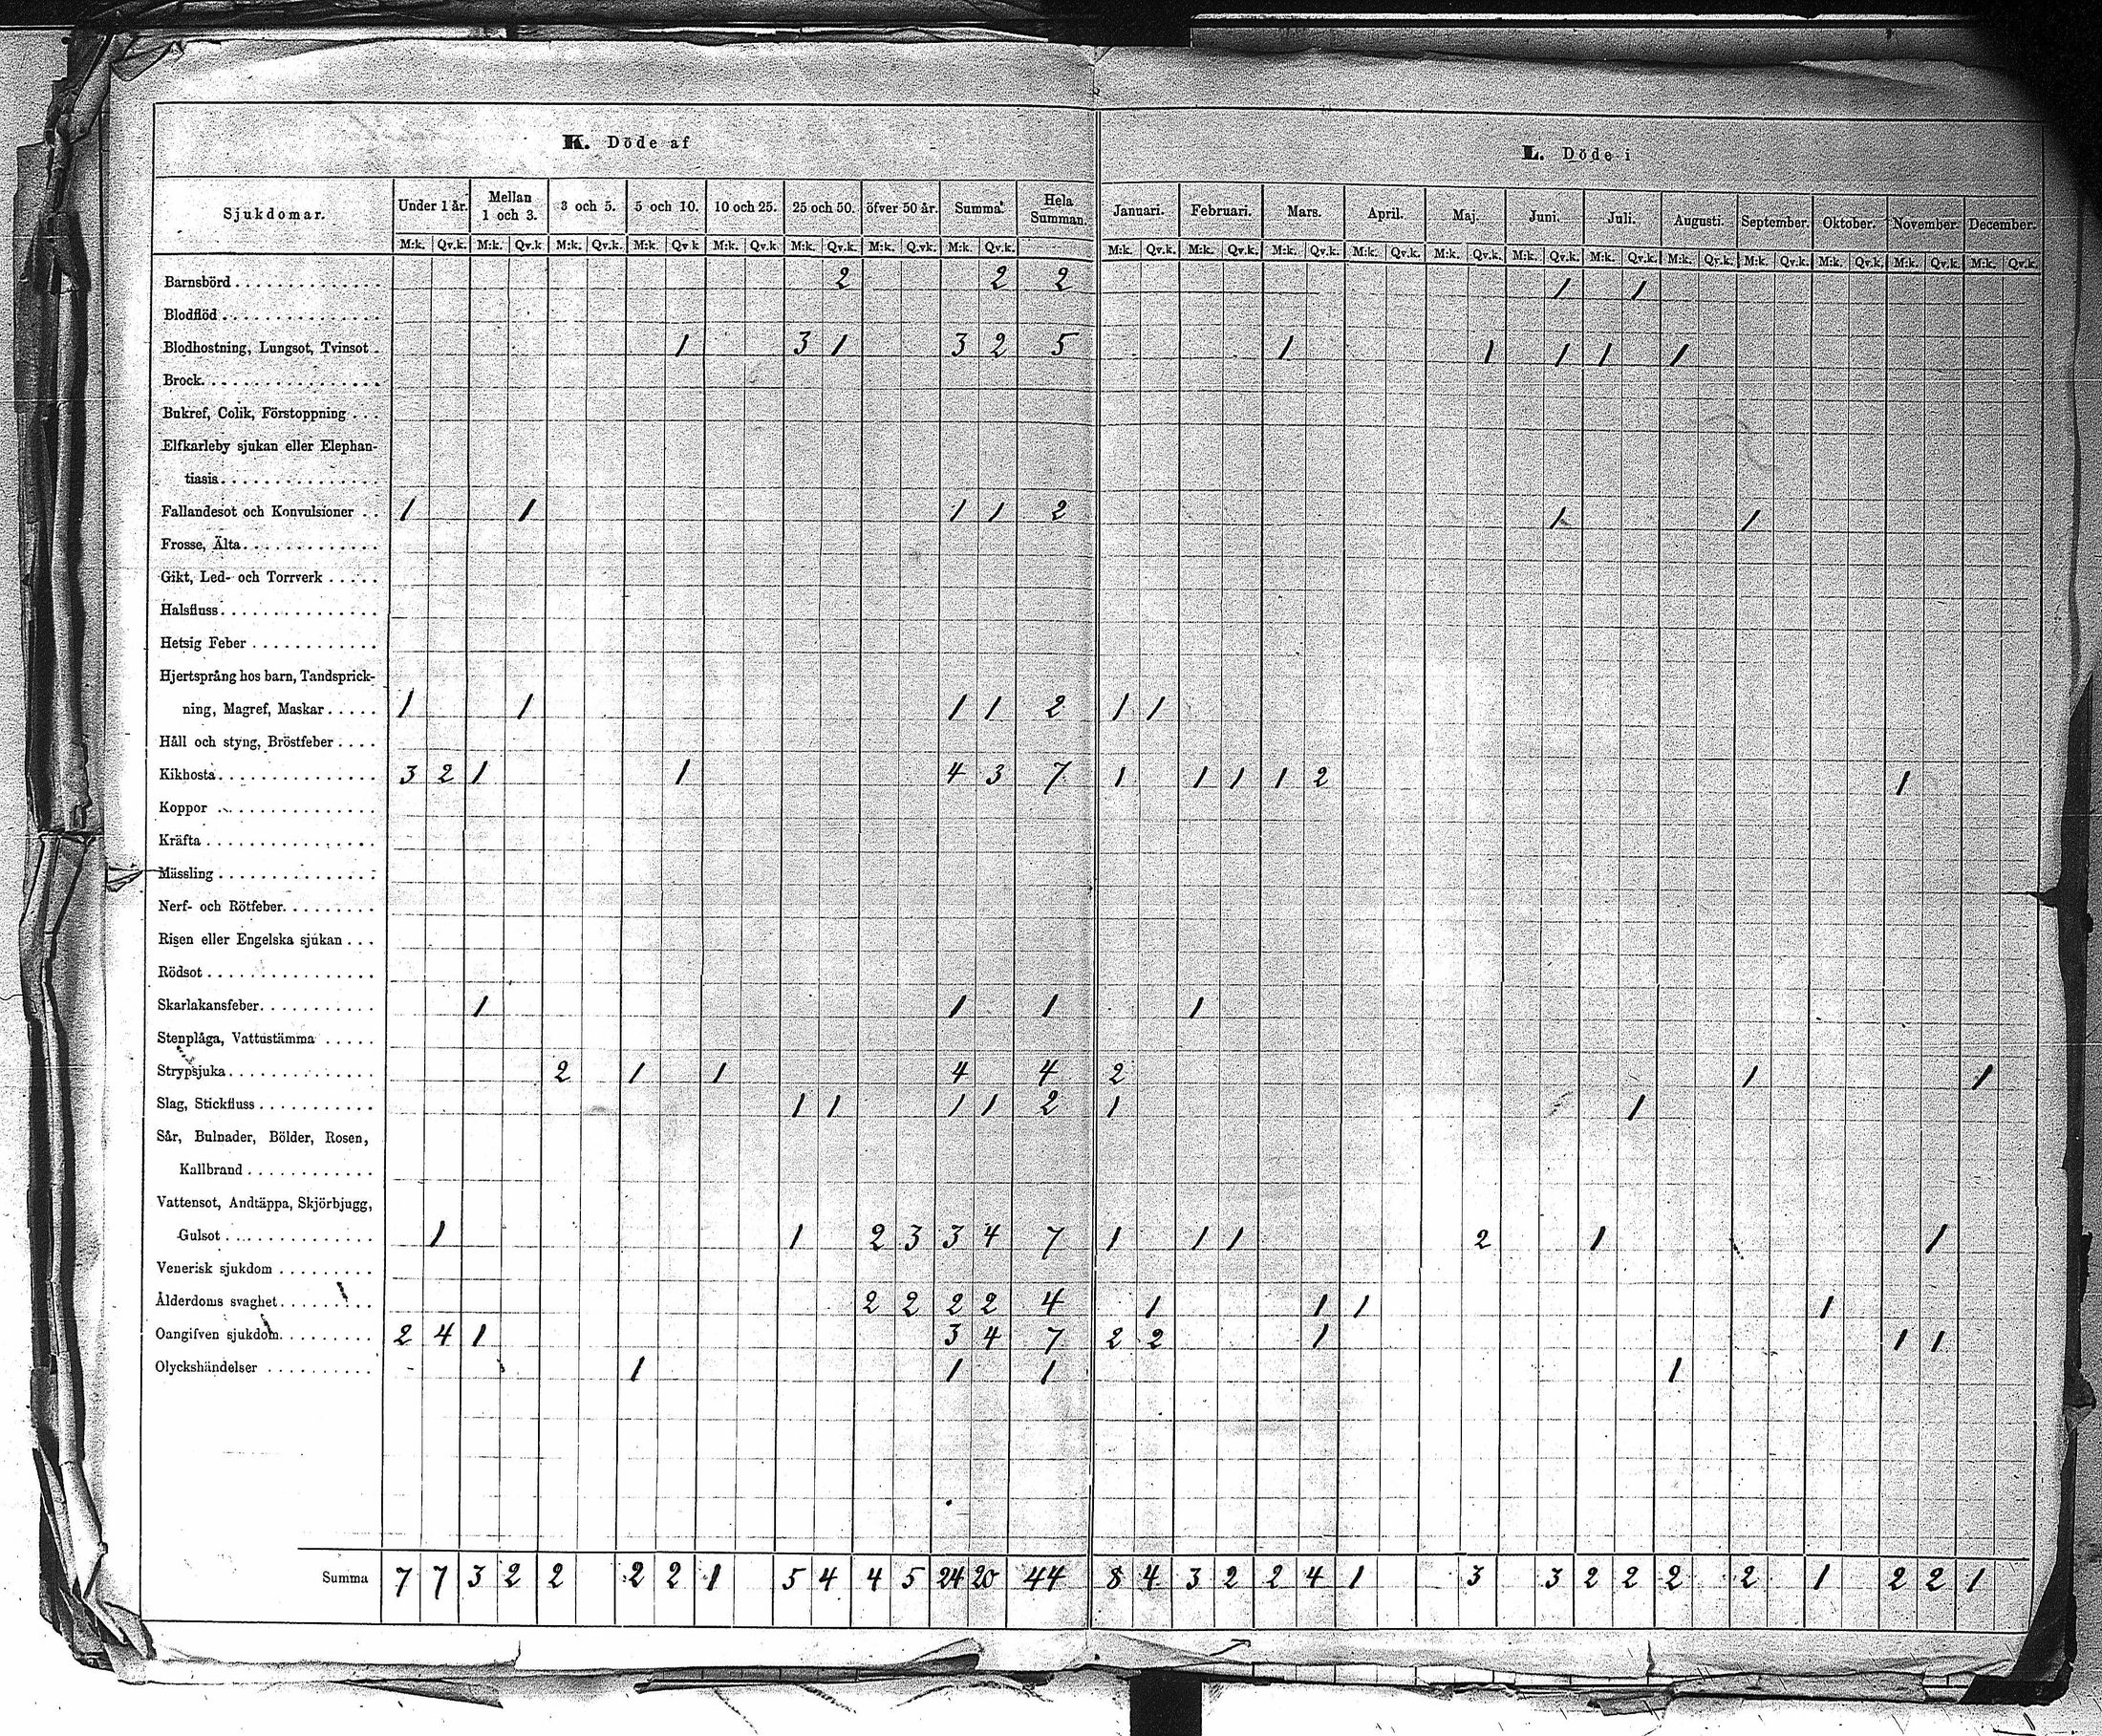 K. Döde af
L. Döde i
Sjukdomar. Under 1 år. Mellan 1 och 3. 3 och 5. 5 och 10. 10 och 25. 25 och 50. öfver 50 år. Summa. Hela Summan. Januari. Februari. Mars. April. Maj. Juni. Juli. Augusti. September. Oktober. November. December.
M:k. Qv.k. M:k. Qv.k M:k. Qv.k. M:k. Qv.k M:k. Qv.k M:k. Qv.k. M:k. Q.vk. M:k. Qv.k. M:k. Qv.k. M:k. Qv.k. M:k. Qv.k. M:k. Qv.k. M:k. Qv.k. M:k. Qv.k. M:k. Qv.k. M:k. Qv.k. M:k. Qv.k. M:k. Qv.k. M:k. Qv.k. M:k. Qv.k.
Barnsbörd 2 2 2 1 1
Blodflöd
Blodhostning, Lungsot, Tvinsot 1 3 1 3 2 5 1 1 1 1 1
Brock
Bukref, Colik, Förstoppning
Elfkarleby sjukan eller Elephan-
tiasis
Fallandesot och Konvulsioner 1 1 1 1 2 1 1
Frosse, Älta
Gikt, Led- och Torrverk
Halsfluss
Hetsig Feber
Hjertsprång hos barn, Tandsprick-
ning, Magref, Maskar 1 1 1 1 2 1 1
Håll och styng, Bröstfeber
Kikhosta 3 2 1 1 4 3 7 1 1 1 1 2 1
Koppor
Kräfta
Mässling
Nerf- och Rötfeber
Risen eller Engelska sjukan
Rödsot
Skarlakansfeber 1 1 1 1
Stenplåga, Vattustämma
Strypsjuka 2 1 1 4 4 2 1 1
Slag, Stickfluss 1 1 1 1 2 1 1
Sår, Bulnader, Bölder, Rosen,
Kallbrand
Vattensot, Andtäppa, Skjörbjugg,
Gulsot 1 1 2 3 3 4 7 1 1 1 2 1 1
Venerisk sjukdom
Ålderdoms svaghet 2 2 2 2 4 1 1 1 1
Oangifven sjukdom 2 4 1 3 4 7 2 2 1 1 1
Olyckshändelser 1 1 1 1
Summa 7 7 3 2 2 2 2 1 5 4 4 5 24 20 44 8 4 3 2 2 4 1 3 3 2 2 2 2 1 2 2 1